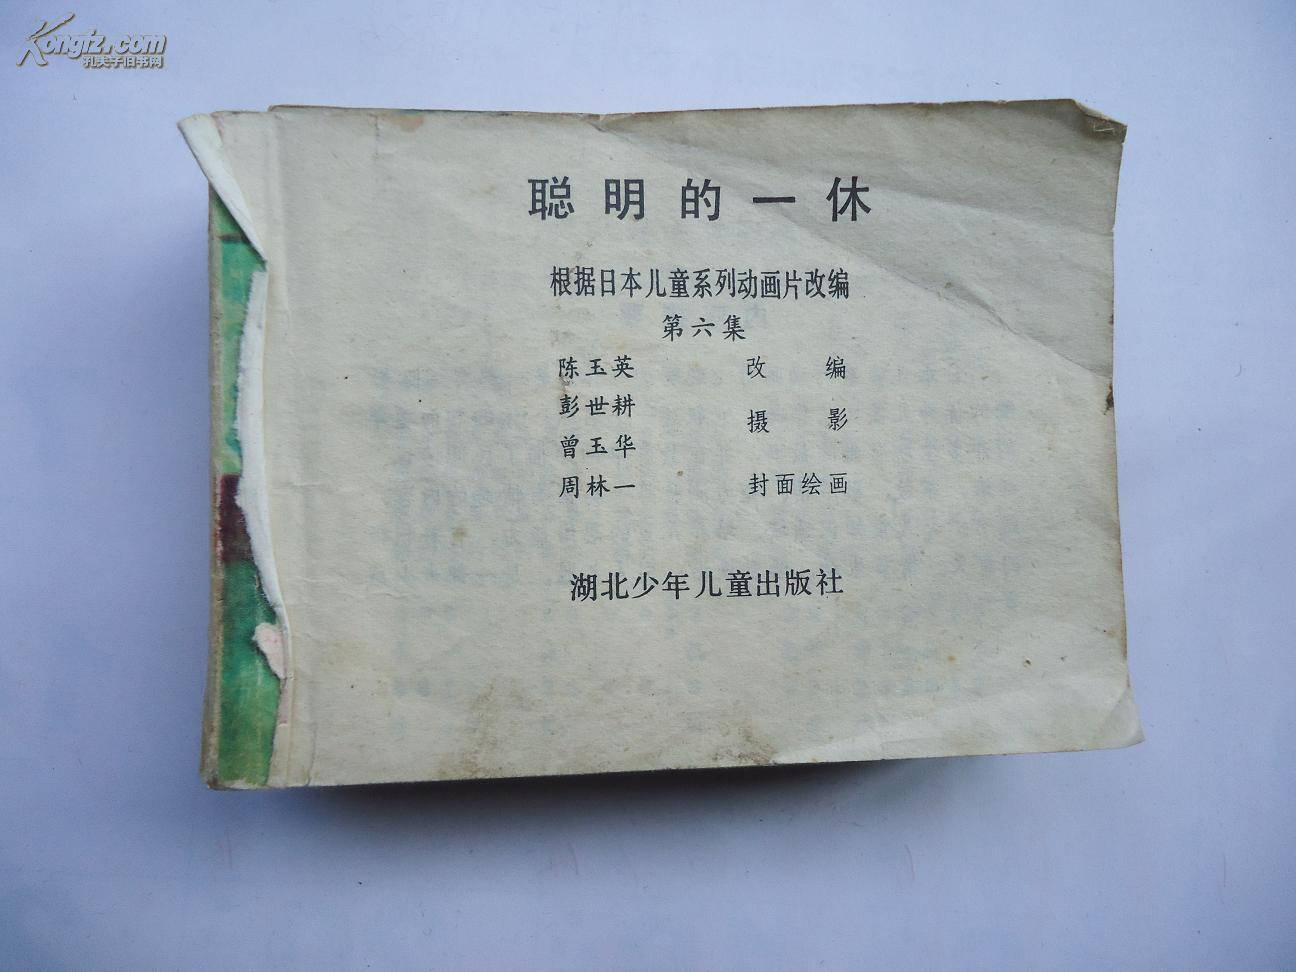 Kongfz.com
孔夫子旧书网
聪明的一休
根据日本儿童系列动画片改编
第六集
陈玉英 改编
彭世耕 摄影
曾玉华
周林一 封面绘画
湖北少年儿童出版社